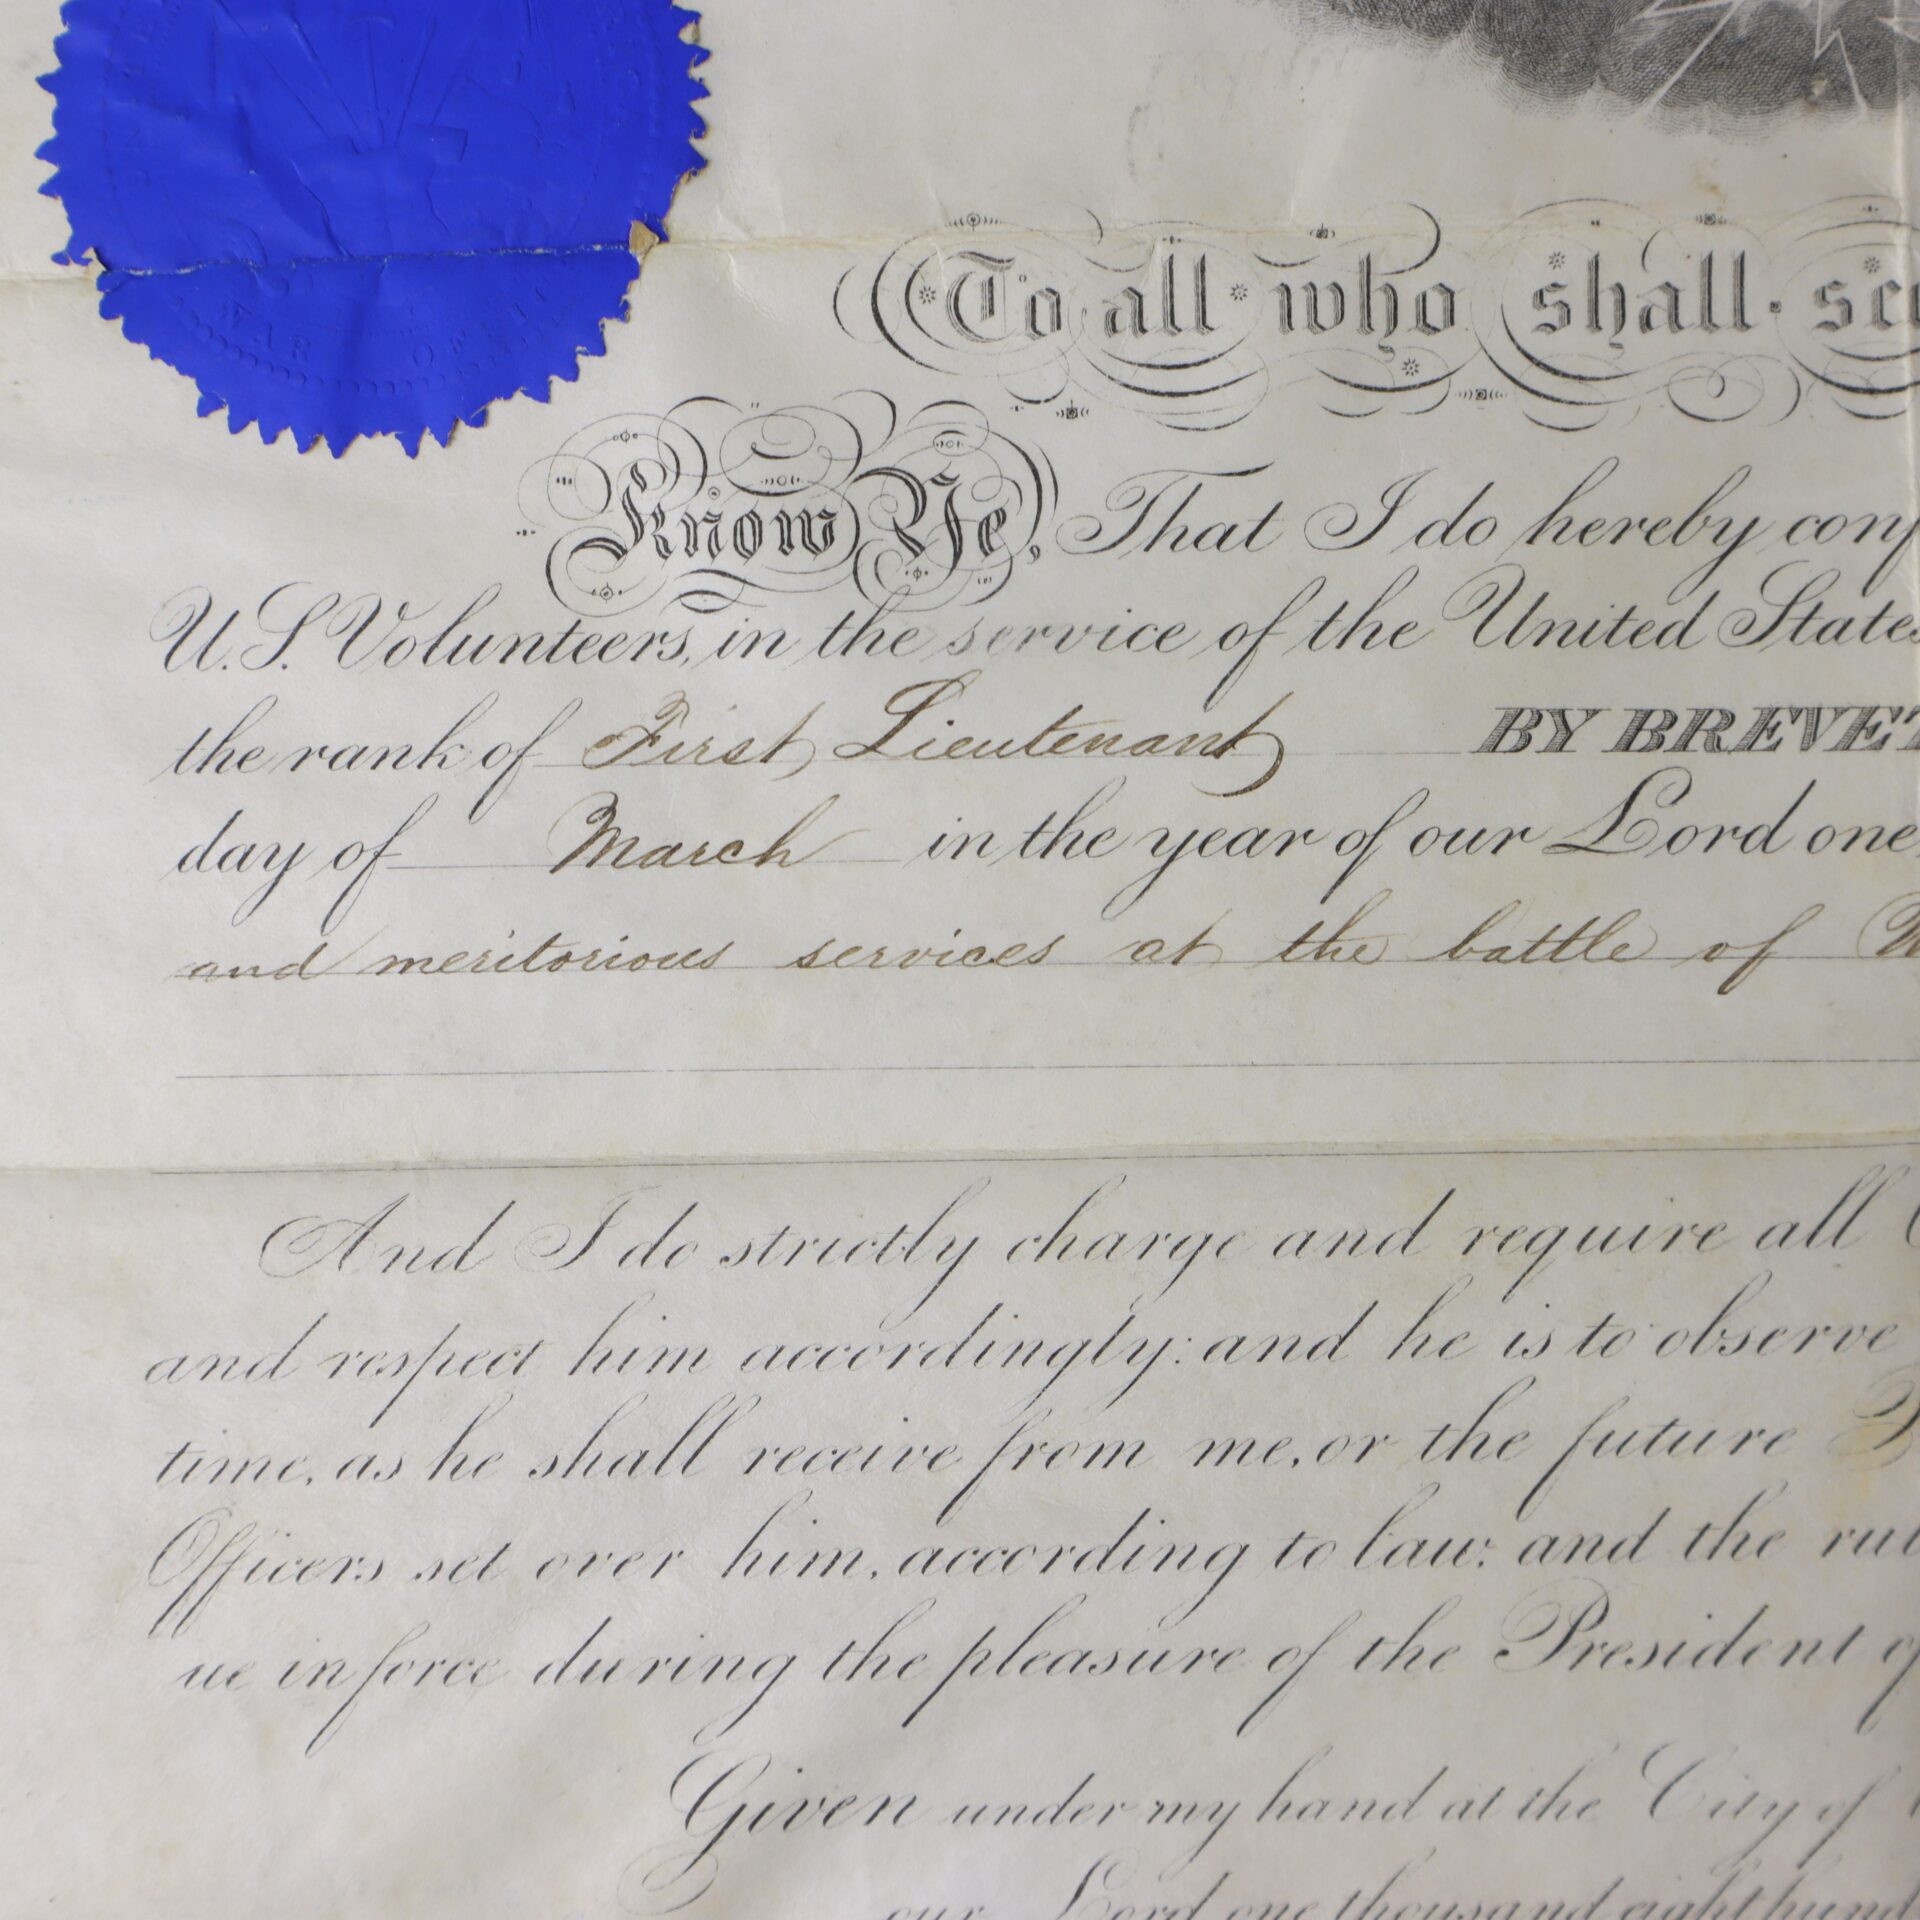 WAR OFFI
To all who shall see
Know Ye, That I do hereby conf
U.S. Volunteers, in the service of the United States
the rank of First Lieutenant BY BREVET
day of March in the year of our Lord one
and meritorious services at the battle of
And I do strictly charge and require all
and respect him accordingly: and he is to observe
time, as he shall receive from me, or the future
Officers set over him, according to law: and the rul
ue in force during the pleasure of the President of
Given under my hand at the City of
our Lord one thousand eight hund